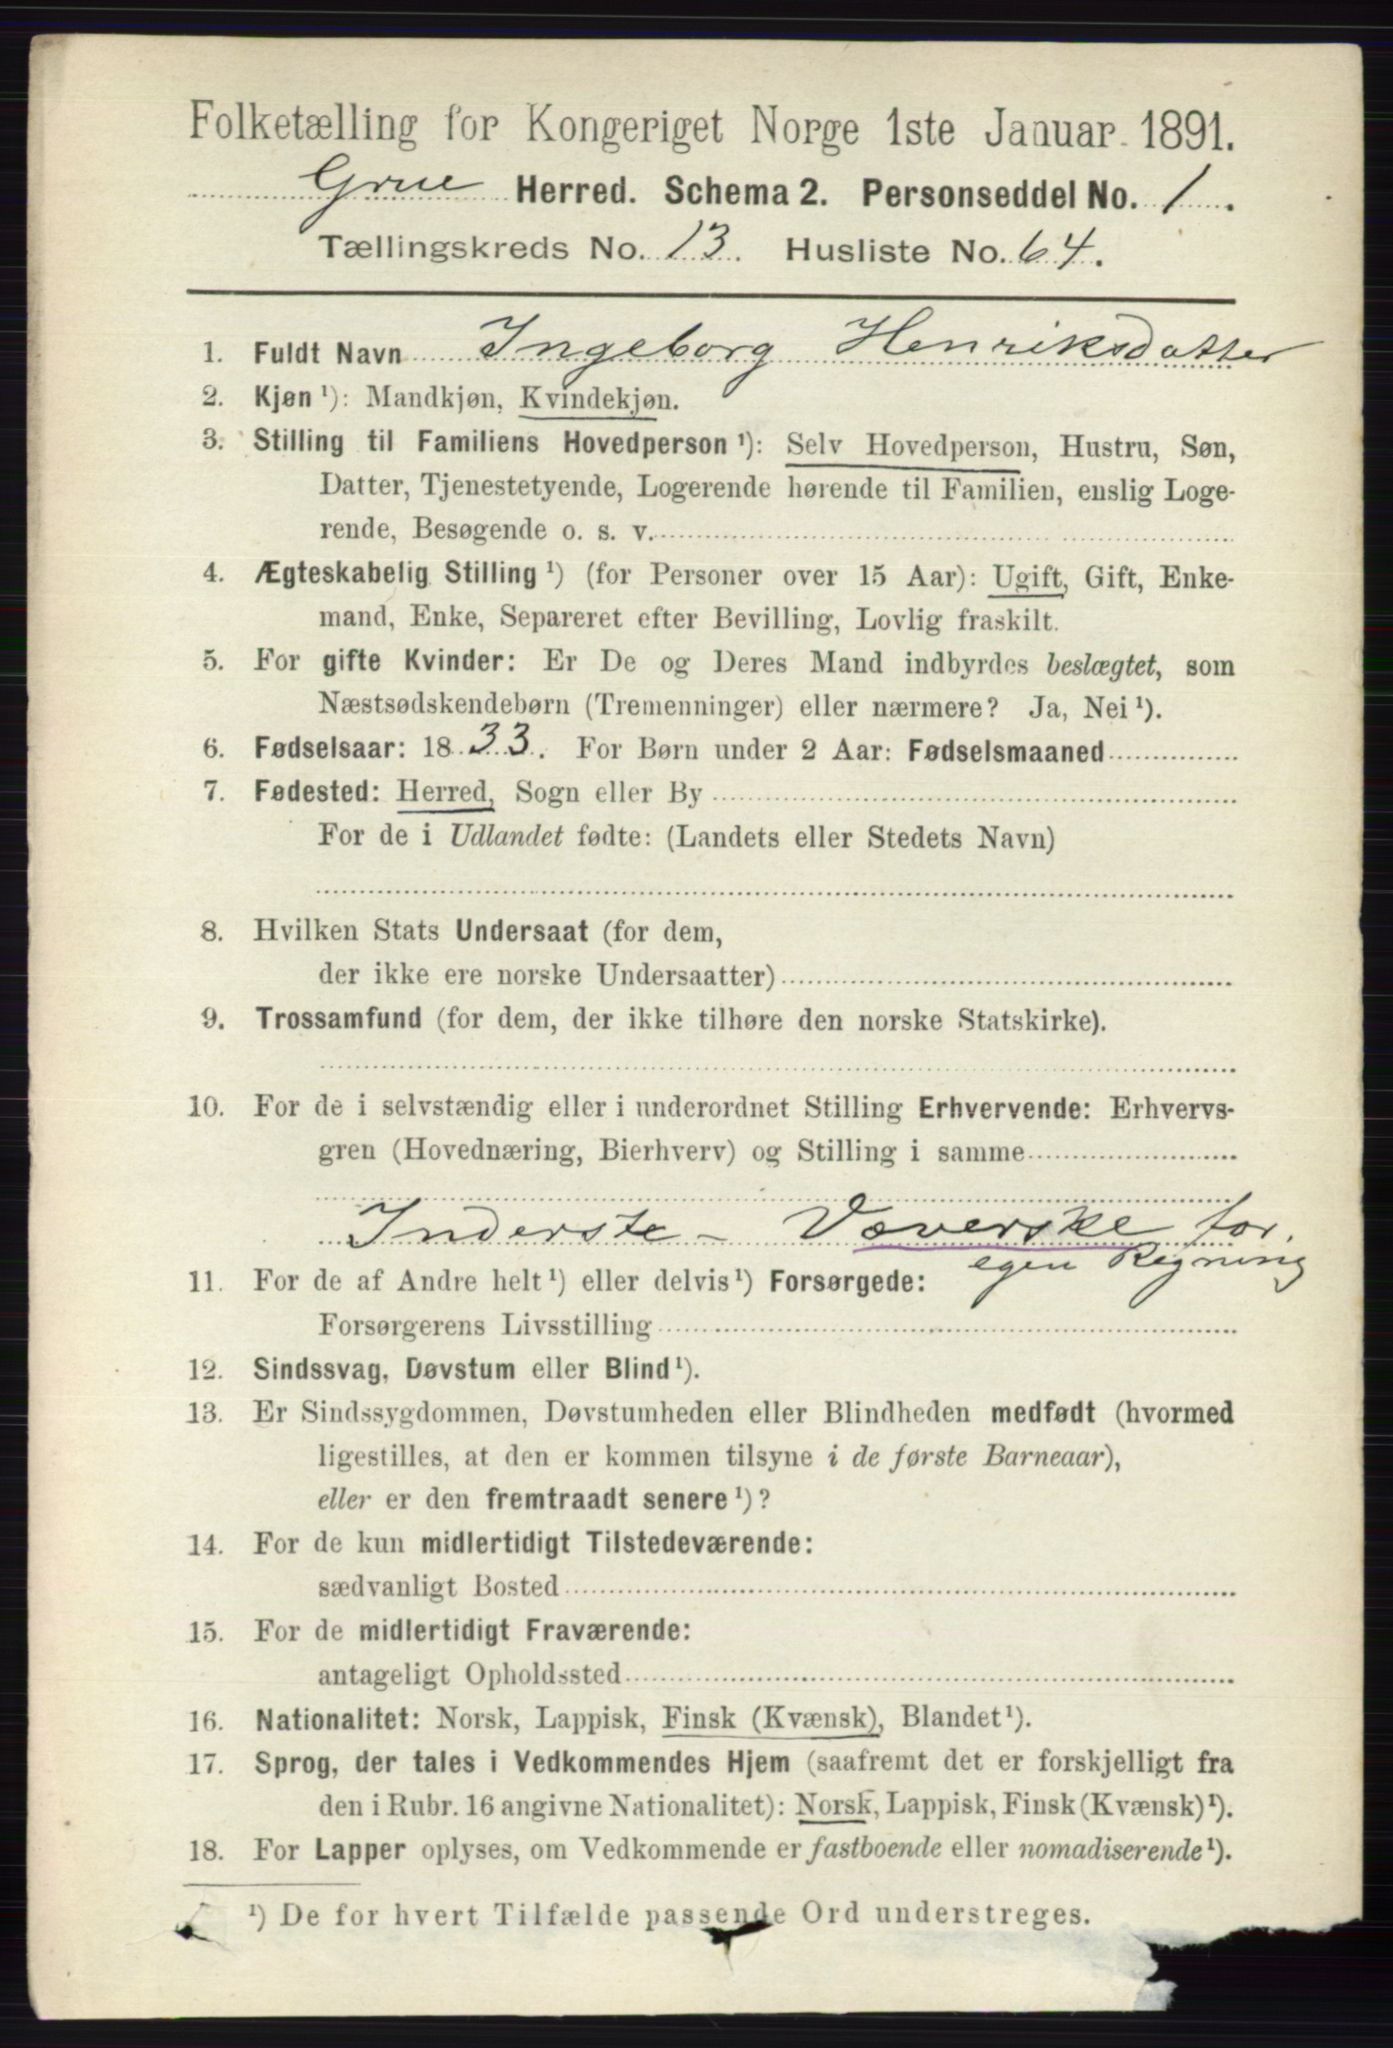 Folketælling for Kongeriget Norge 1ste Januar 1891.
Grue Herred. Schema 2. Personseddel No. 1.
Tællingskreds No. 13. Husliste No. 64.
1. Fuldt Navn Ingeborg Henriksdatter
2. Kjøn ¹): Mandkjøn, Kvindekjøn.
3. Stilling til Familiens Hovedperson ¹): Selv Hovedperson, Hustru, Søn,
Datter, Tjenestetyende, Logerende hørende til Familien, enslig Loge-
rende, Besøgende o. s. v.
4. Ægteskabelig Stilling ¹) (for Personer over 15 Aar): Ugift, Gift, Enke-
mand, Enke, Separeret efter Bevilling, Lovlig fraskilt.
5. For gifte Kvinder: Er De og Deres Mand indbyrdes beslægtet, som
Næstsødskendebørn (Tremenninger) eller nærmere? Ja, Nei ¹).
6. Fødselsaar: 1833. For Børn under 2 Aar: Fødselsmaaned
7. Fødested: Herred, Sogn eller By
For de i Udlandet fødte: (Landets eller Stedets Navn)
8. Hvilken Stats Undersaat (for dem,
der ikke ere norske Undersaatter)
9. Trossamfund (for dem, der ikke tilhøre den norske Statskirke).
10. For de i selvstændig eller i underordnet Stilling Erhvervende: Erhvervs-
gren (Hovednæring, Bierhverv) og Stilling i samme
Inderste - Væverske for
egen Regning
11. For de af Andre helt ¹) eller delvis ¹) Forsørgede:
Forsørgerens Livsstilling
12. Sindssvag, Døvstum eller Blind ¹).
13. Er Sindssygdommen, Døvstumheden eller Blindheden medfødt (hvormed
ligestilles, at den er kommen tilsyne i de første Barneaar),
eller er den fremtraadt senere ¹)?
14. For de kun midlertidigt Tilstedeværende:
sædvanligt Bosted
15. For de midlertidigt Fraværende:
antageligt Opholdssted
16. Nationalitet: Norsk, Lappisk, Finsk (Kvænsk), Blandet ¹).
17. Sprog, der tales i Vedkommendes Hjem (saafremt det er forskjelligt fra
den i Rubr. 16 angivne Nationalitet): Norsk, Lappisk, Finsk (Kvænsk) ¹).
18. For Lapper oplyses, om Vedkommende er fastboende eller nomadiserende ¹).
¹) De for hvert Tilfælde passende Ord understreges.